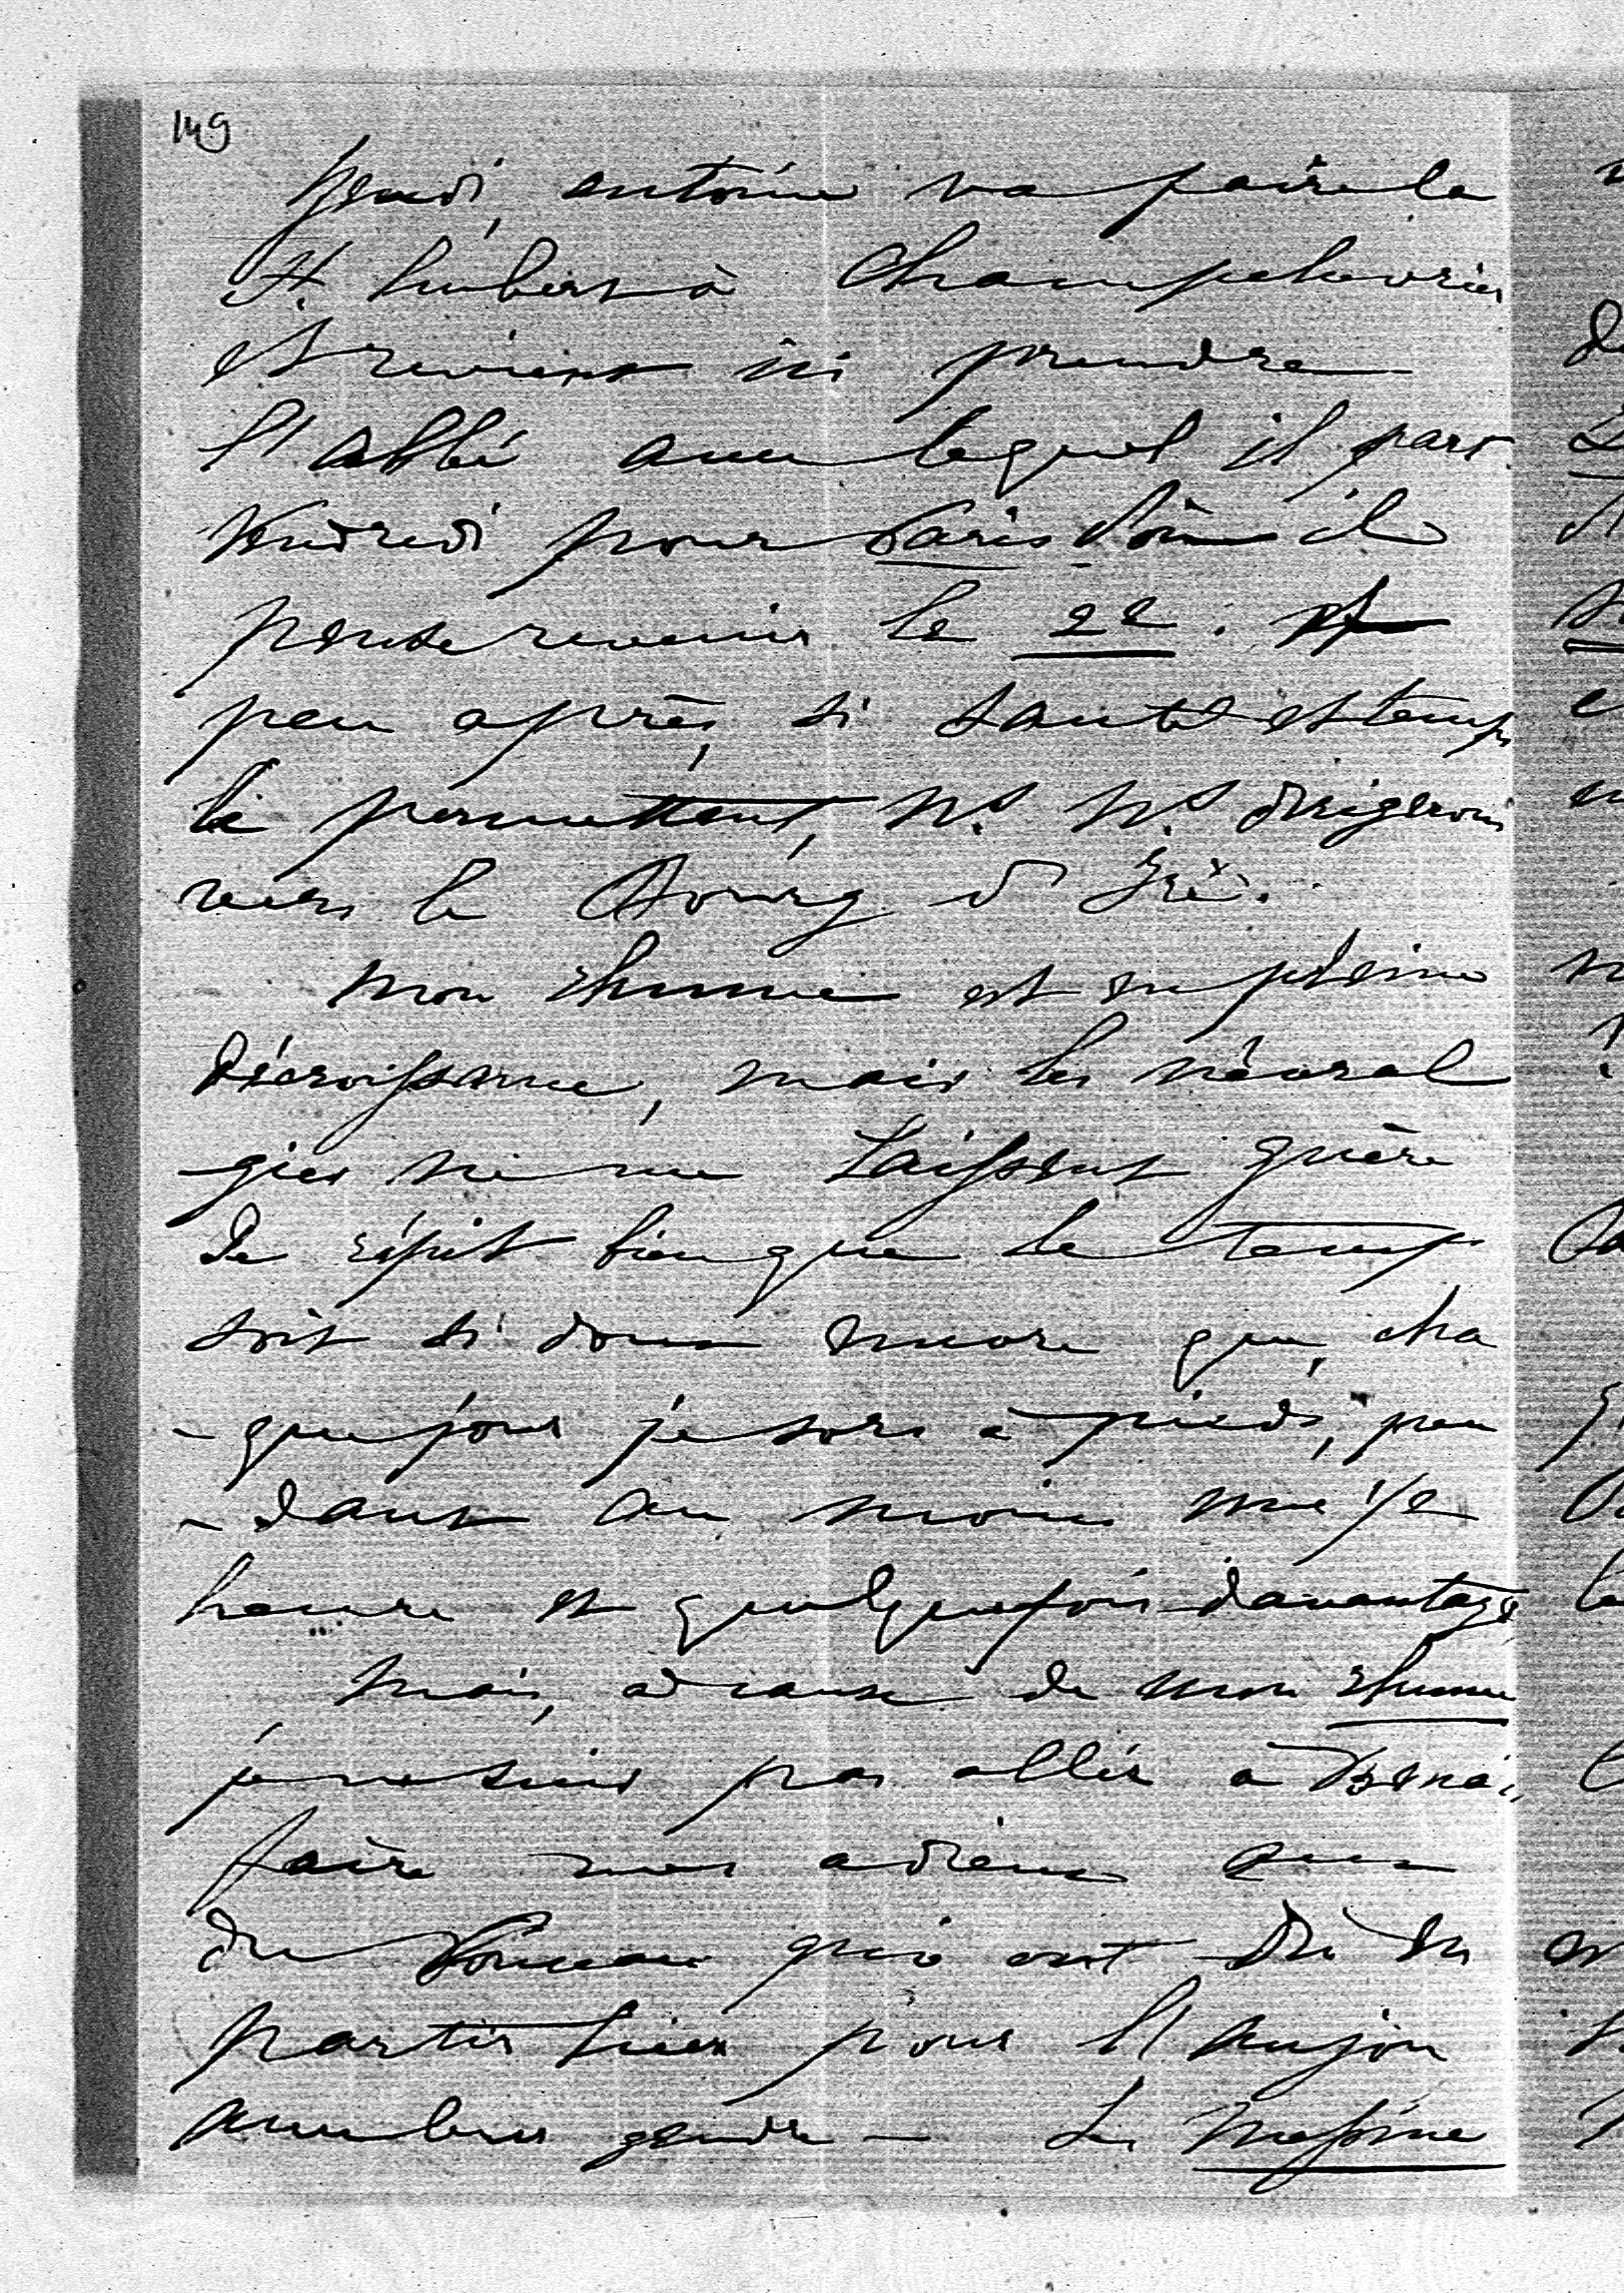 149
Jeudi, antoine va faire la
St. hubert à Champchevrier
et revient ici prendre
l'abbé avec lequel il part
Vendredi pour Paris d'où il
pense revenir le 22.
peu après, si santé et temps
le permettent, n.s n.s dirigerons
vers le Bourg d'Iré.
Mon rhume est en pleine
décroissance, mais les névral
-gies ne me laissent guère
de répit bien que le temps
soit si doux encore que, cha
-que jour je sors à pieds, pen
-dant au moins une 1/2
heure et quelquefois davantage
Mais, à cause de mon rhume
je ne suis pas allée à
faire mes adieux aux
du qui ont dû
partir hier pour l'anjou
avec leur gendre - Le